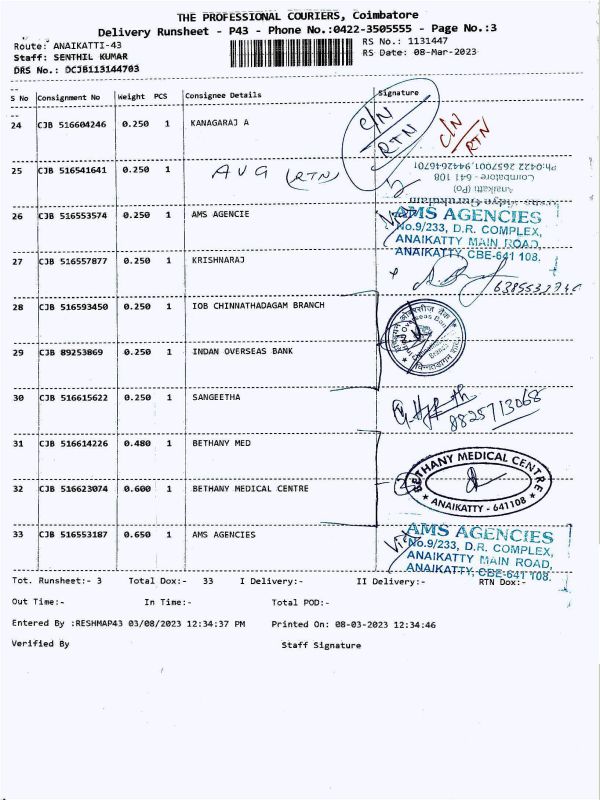 THE PROFESSIONAL COURIERS, Coimbatore
Delivery Runsheet - P43 - Phone No.:0422-3505555 - Page No.:3
Route: ANAIKATTI-43 RS No.: 1131447
Staff: SENTHIL KUMAR RS Date: 08-Mar-2023
DRS No.: DCJB113144703
S No Consignment No Weight PCS Consignee Details Signature
24 CJB 516604246 0.250 1 KANAGARAJ A C/N RTN C/N RTN
25 CJB 516541641 0.250 1 AVG (RTN)
Ph:0422 2657001, 9442646701
Coimbatore - 641 108
Anaikatti (Po)
26 CJB 516553574 0.250 1 AMS AGENCIE
AMS AGENCIES
No.9/233, D.R. COMPLEX,
ANAIKATTY MAIN ROAD,
ANAIKATTY, CBE-641 108.
27 CJB 516557877 0.250 1 KRISHNARAJ
28 CJB 516593450 0.250 1 IOB CHINNATHADAGAM BRANCH
29 CJB 89253869 0.250 1 INDAN OVERSEAS BANK
30 CJB 516615622 0.250 1 SANGEETHA 8825713068
31 CJB 516614226 0.480 1 BETHANY MED
32 CJB 516623074 0.600 1 BETHANY MEDICAL CENTRE
BETHANY MEDICAL CENTRE
★ ANAIKATTY - 641108 ★
33 CJB 516553187 0.650 1 AMS AGENCIES
AMS AGENCIES
No.9/233, D.R. COMPLEX,
ANAIKATTY MAIN ROAD,
ANAIKATTY, CBE-641 108.
Tot. Runsheet:- 3 Total Dox:- 33 I Delivery:- II Delivery:- RTN Dox:-
Out Time:- In Time:- Total POD:-
Entered By :RESHMAP43 03/08/2023 12:34:37 PM Printed On: 08-03-2023 12:34:46
Verified By Staff Signature